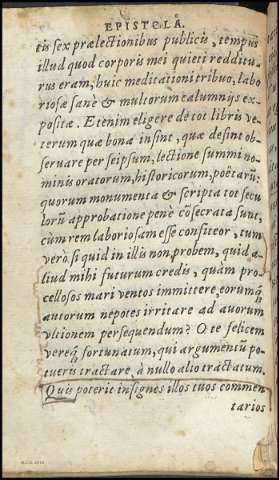 EPISTOLA.
eis sex prælectionibus publicis, tempus
illud quod corporis mei quieti redditu-
rus eram, huic meditationi tribuo, labo
riosæ sanè & multorum calumnijs ex-
positæ. Etenim eligere de tot libris ve-
terum quæ bona insint, quæ desint ob-
seruare per seipsum, lectione summi no-
minis oratorum, historicorum, poëtarũ:
quorum monumenta & scripta tot secu
lorũ approbatione penè cõsecrata sunt,
cùm rem laboriosam esse confiteor, tum
verò si quid in illis non probem, quid a-
liud mihi futurum credis, quàm pro-
cellosos mari ventos immittere, eorumq́;
autorum nepotes irritare ad auorum
vltionem persequendum? O te felicem
vereq́; fortunatum, qui argumentũ po-
tueris tractare, à nullo alio tractatum.
Quis poterit insignes illos tuos commen
tarios